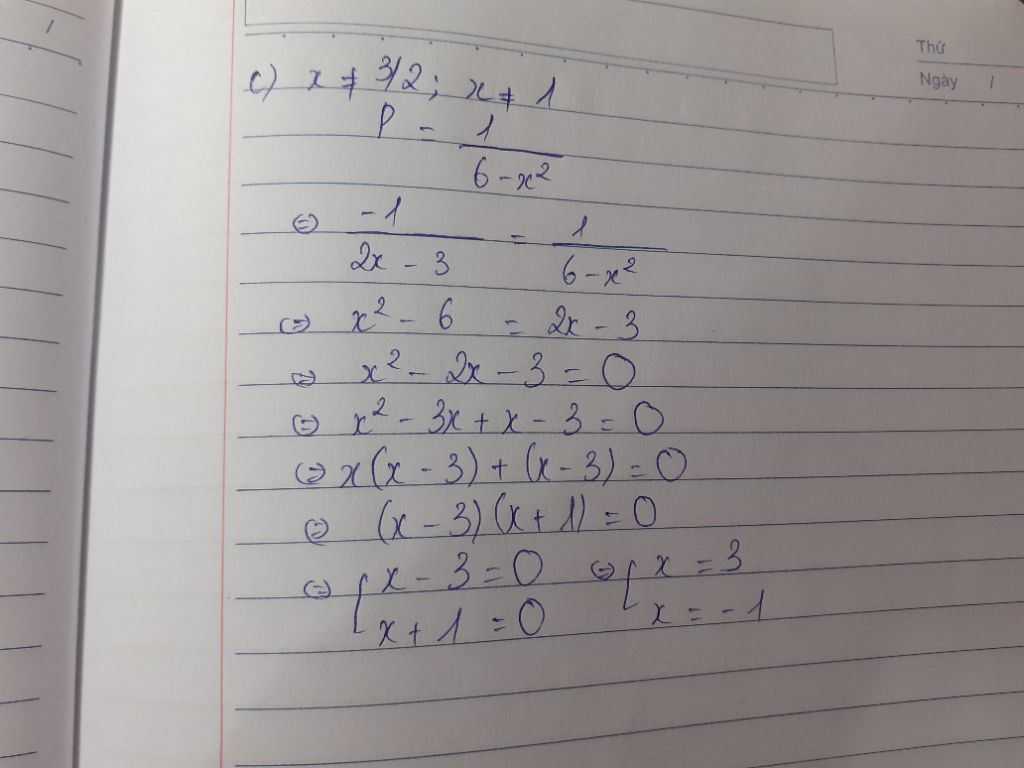 Thứ
Ngày /
/
c) x ≠ 3/2; x ≠ 1
P = 1/(6 - x²)
⇔ -1/(2x - 3) = 1/(6 - x²)
⇔ x² - 6 = 2x - 3
⇔ x² - 2x - 3 = 0
⇔ x² - 3x + x - 3 = 0
⇔ x(x - 3) + (x - 3) = 0
⇔ (x - 3)(x + 1) = 0
⇔ [ x - 3 = 0 ⇔ [ x = 3
x + 1 = 0 x = -1